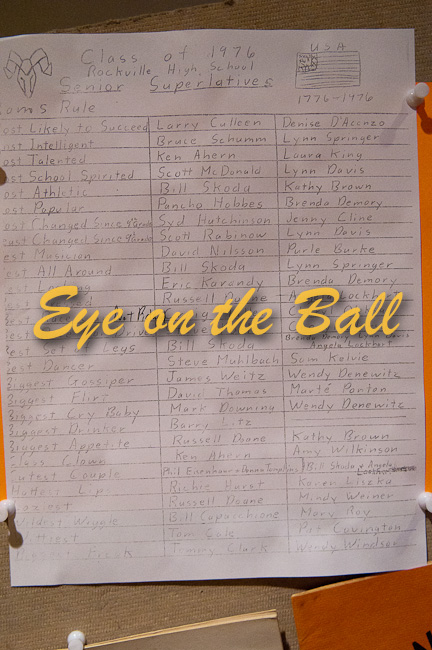 Class of 1976
Rockville High School
Senior Superlatives
USA
1776-1976
Rule
ost Likely to Succeed Larry Culleen Denise D'Acunzo
ost Intelligent Bruce Schumm Lynn Springer
ost Talented Ken Ahern Laura King
ost School Spirited Scott McDonald Lynn Davis
ost Athletic Bill Skoda Kathy Brown
ost Popular Pancho Hobbes Brenda Demory
ost Changed Since Syd Hutchinson Jenny Cline
east Changed Since Scott Rabinow Lynn Davis
est Musician David Nilsson Purle Burke
est All Around Bill Skoda Lynn Springer
est Eric Karandy Brenda Demory
Russell Lockhart
Eye on the Ball
Legs Bill Skoda Angela Lockhart
est Dancer Steve Muhlbach Sam Kelvie
Biggest Gossiper James Weitz Wendy Denewitz
Biggest Flirt David Thomas Marté Panton
Biggest Cry Baby Mark Downing Wendy Denewitz
Biggest Drinker Barry Litz
Biggest Appetite Russell Doane Kathy Brown
Class Clown Ken Ahern Amy Wilkinson
utest Couple Phil Bill Skoda & Angela
Hottest Lips Richie Hurst Karen Liszka
Russell Doane Mindy Weiner
ldest Wiggle Bill Capacchione Mary Roy
ttiest Tom Cole Pat Covington
Freak Tommy Clark Wendy Windsor